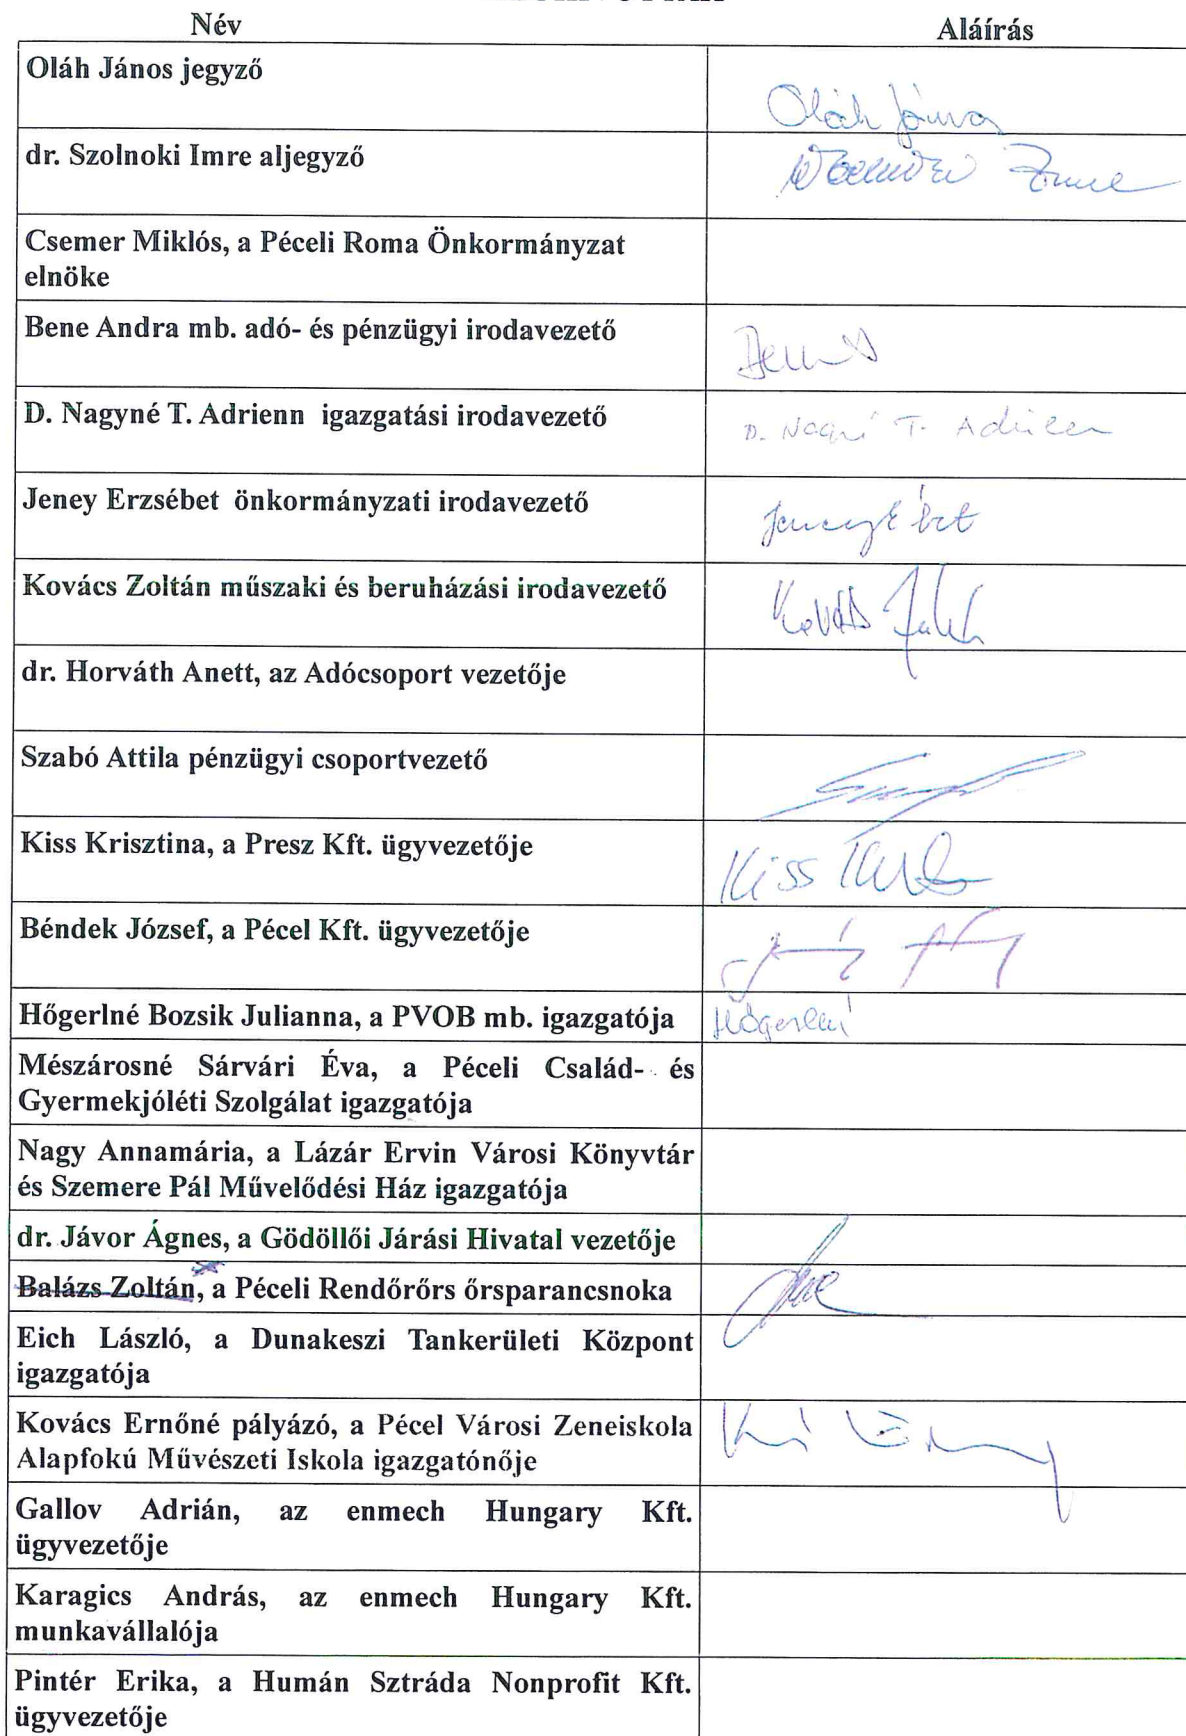 Név Aláírás
Oláh János jegyző Oláh János
dr. Szolnoki Imre aljegyző
Csemer Miklós, a Péceli Roma Önkormányzat
elnöke
Bene Andra mb. adó- és pénzügyi irodavezető
D. Nagyné T. Adrienn igazgatási irodavezető D. Nagyné T. Adrienn
Jeney Erzsébet önkormányzati irodavezető
Kovács Zoltán műszaki és beruházási irodavezető Kovács
dr. Horváth Anett, az Adócsoport vezetője
Szabó Attila pénzügyi csoportvezető
Kiss Krisztina, a Presz Kft. ügyvezetője Kiss
Béndek József, a Pécel Kft. ügyvezetője
Hőgerlné Bozsik Julianna, a PVOB mb. igazgatója Hőgerlné
Mészárosné Sárvári Éva, a Péceli Család- és
Gyermekjóléti Szolgálat igazgatója
Nagy Annamária, a Lázár Ervin Városi Könyvtár
és Szemere Pál Művelődési Ház igazgatója
dr. Jávor Ágnes, a Gödöllői Járási Hivatal vezetője
Balázs Zoltán, a Péceli Rendőrőrs őrsparancsnoka
Eich László, a Dunakeszi Tankerületi Központ
igazgatója
Kovács Ernőné pályázó, a Pécel Városi Zeneiskola
Alapfokú Művészeti Iskola igazgatónője
Gallov Adrián, az enmech Hungary Kft.
ügyvezetője
Karagics András, az enmech Hungary Kft.
munkavállalója
Pintér Erika, a Humán Sztráda Nonprofit Kft.
ügyvezetője